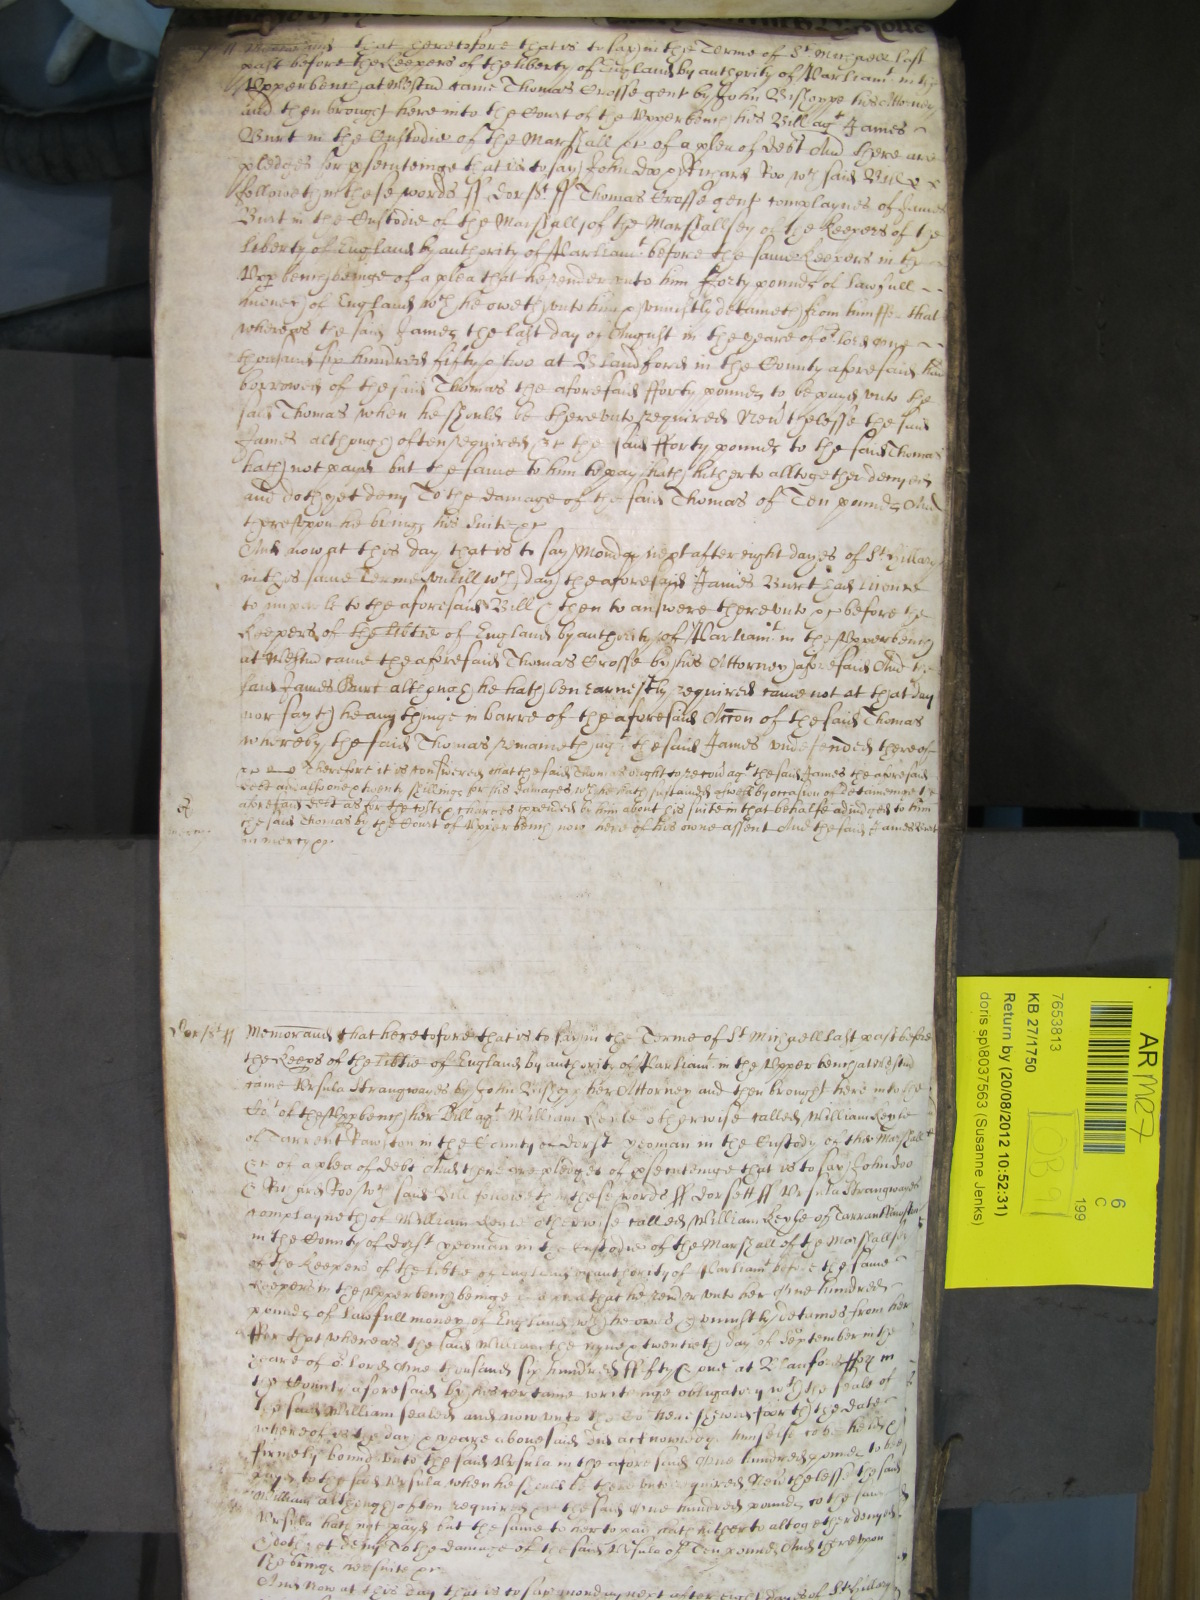 Memorand that heretofore that is to say in the Terme of St Michaell last
past before the Keepers of the liberty of England by authority of Parliamt in the
Upperbench at Westm came Thomas Crosse gent by John Bishopp his Attorney
and then brought here into the Court of the Upperbench his Bill agt James
Burt in the Custodie of the Marshall &c of a plea of debt And there are
pledges for psenteinge that is to say John Doo & Richard Roo wch said Bill
followeth in these words ss Dorst ss Thomas Crosse gent complaynes of James
Burt in the Custodie of the Marshall of the Marshallsey of the Keepers of the
liberty of England by authority of Parliamt before the same Keepers in the
Upp bench beinge of a plea that he render unto him fforty pounds of lawfull
money of England wch he oweth unto him & uniustly detaineth from him ffor that
whereas the said James the last day of August in the yeare of or lord one
thousand six hundred fifty & two at Blandford in the County aforesaid had
borrowed of the said Thomas the aforesaid fforty pounds to be payd unto the
said Thomas when he should be thereunto required Nevthelesse the said
James although often required &c the said fforty pounds to the said Thomas
hath not payd but the same to him to pay hath hitherto alltogether denyed
and doth yet deny To the damage of the said Thomas of Ten pounds And
thereupon he brings his suite &c
And now at this day that is to say Monday next after eight dayes of St Hillary
in this same Terme untill wch day the aforesaid James Burt had licence
to imparle to the aforesaid Bill & then to answere thereunto &c before the
Keepers of the libtie of England by authority of Parliamt in the Upperbench
at Westm came the aforesaid Thomas Crosse by his Attorney aforesaid And the
said James Burt although he hath ben earnestly required came not at that day
nor sayth he any thinge in barre of the aforesaid Accon of the said Thomas
whereby the said Thomas remaineth agt the said James undefended thereof
&c Therefore it is considered that the said Thomas ought to recov agt the said James the aforesaid
debt and also one & twenty shillings for his damages wch he hath susteined aswell by occasion of deteineinge the
aforesaid debt as for the costs & charges expended by him about his suite in that behalfe adiudged to him
the said Thomas by the Court of Upper bench now here of his owne assent And the said James Burt
in mercy &c
Dorst ss Memorand that heretofore that is to say in the Terme of St Michaell last past before
the Keeps of the libtie of England by authoritie of Parliamt in the Upper bench at Westm
came Ursula Strangwayes by John Bishopp her Attorney and then brought here into the
Cort of the Upp bench her Bill agt William Keyle otherwise called William Keyle
of Tarrent Rawston in the County of Dorst yeoman in the Custody of the Marshall
&c of a plea of debt And there are pledges of psenteinge that is to say John Doo
& Richard Roo wch said Bill followeth in these words ss Dorsett ss Ursula Strangwayes
complayneth of William Keyle otherwise called William Keyle of Tarrant Rawston
in the County of Dorst yeoman in the Custodie of the Marshall of the Marshallsey
of the Keepers of the libtie of England by authority of Parliamt before the same
Keepers in the Upper bench beinge of a plea that he render unto her One hundred
pounds of lawfull money of England wch he owes & uniustly detaines from her
ffor that whereas the said William the nyne & twentieth day of September in the
yeare of or lord one thousand six hundred fifty & one at Blanford fforu in
the County aforesaid by his certaine writeinge obligatory wth the seale of
the said William sealed and now unto the Co here shewed forth the date
whereof is the day & yeare abovesaid did acknowledge himselfe to be held &
firmely bound unto the said Ursula in the aforesaid One hundred pounds to bee
payd to the said Ursula when he should be thereunto required Nevthelesse the said
William although often required &c the said One hundred pounds to the said
Ursula hath not payd but the same to her to paie hath hitherto altogether denyed
& doth yet deny To the damage of the said Ursula of Ten pounds And thereupon
she brings her suite &c
And now at this day that is to say monday next after eight dayes of St Hillary
AR MR7
7653813
KB 27/1750
Return by (20/08/2012 10:52:31)
doris sp\8037563 (Susanne Jenks)
6
C
199